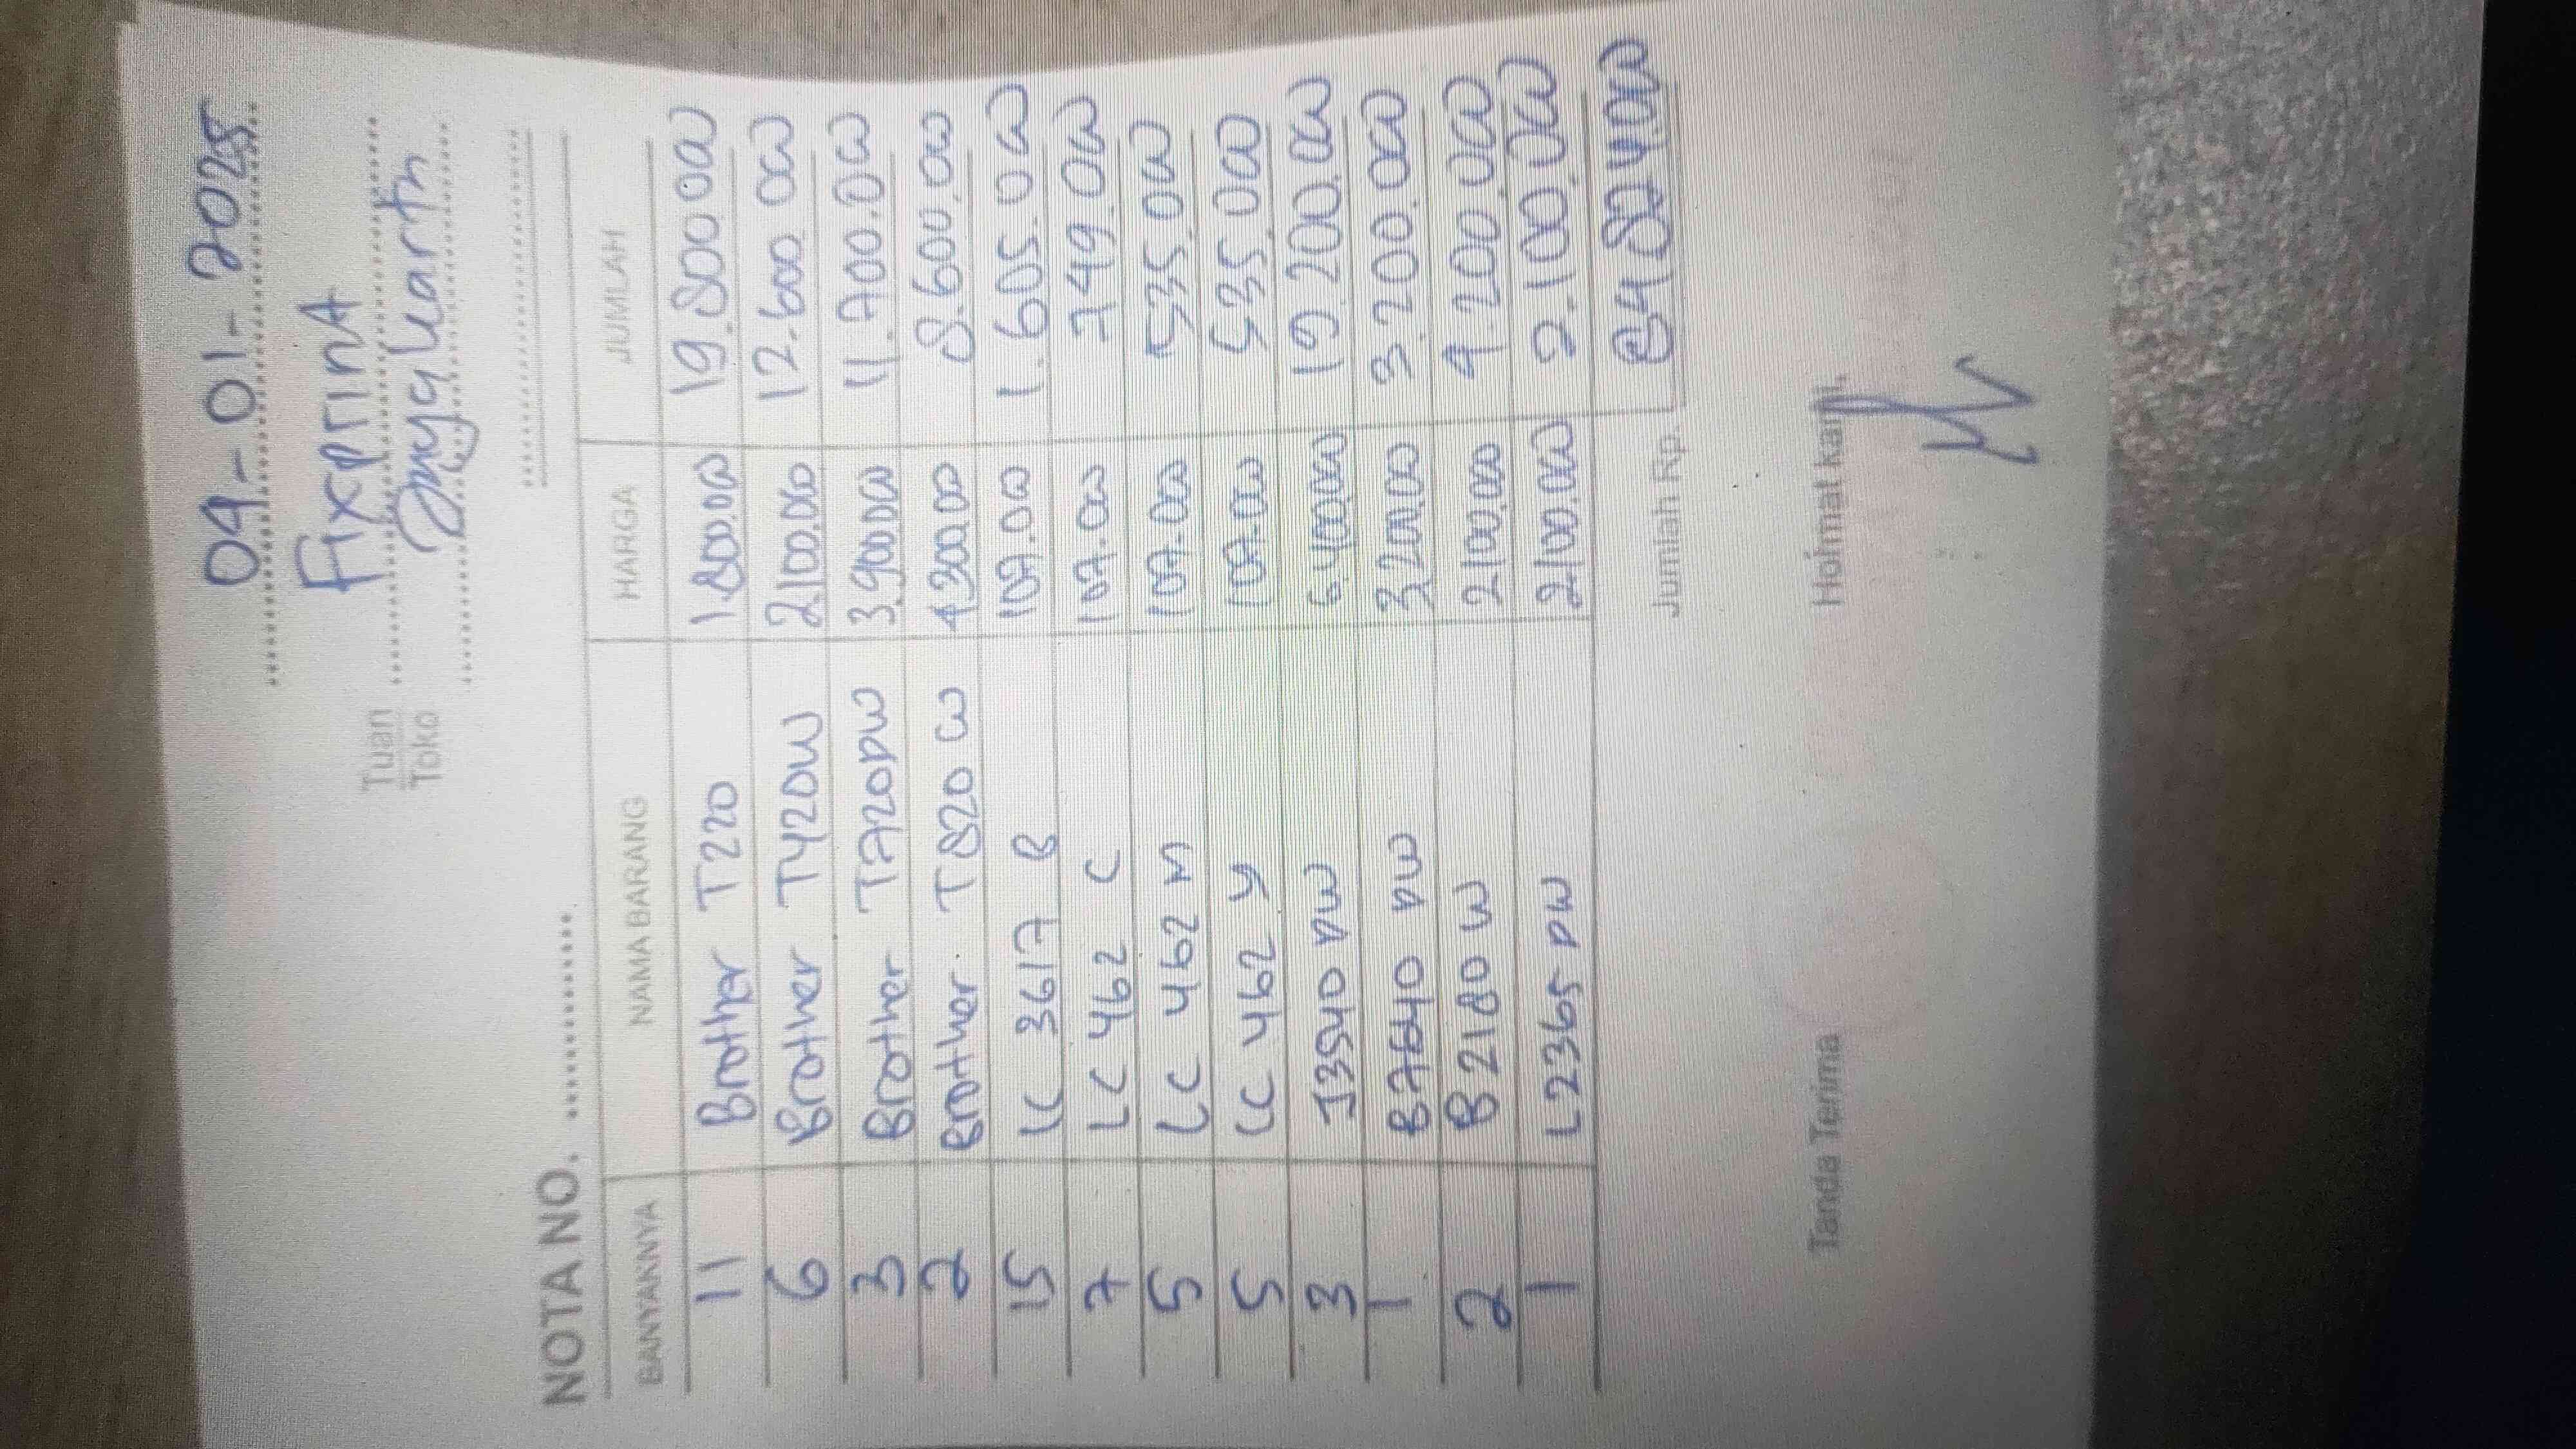 04-01-2025
Tuan FIXPRINT
Toko Jayakarta
NOTA NO. ............
BANYAKNYA NAMA BARANG HARGA JUMLAH
11 Brother T220 1.800.000 19.800.000
6 Brother T420W 2.100.000 12.600.000
3 Brother T720DW 3.900.000 11.700.000
2 Brother T820 W 4.300.000 8.600.000
15 LC 3617 B 107.000 1.605.000
7 LC 462 C 107.000 749.000
5 LC 462 M 107.000 535.000
5 LC 462 Y 107.000 535.000
3 J3540 DW 6.400.000 19.200.000
1 B7640 DW 3.200.000 3.200.000
2 B2180 W 2.100.000 4.200.000
1 L2365 DW 2.100.000 2.100.000
Jumlah Rp. 84.824.000
Tanda Terima Hormat kami,